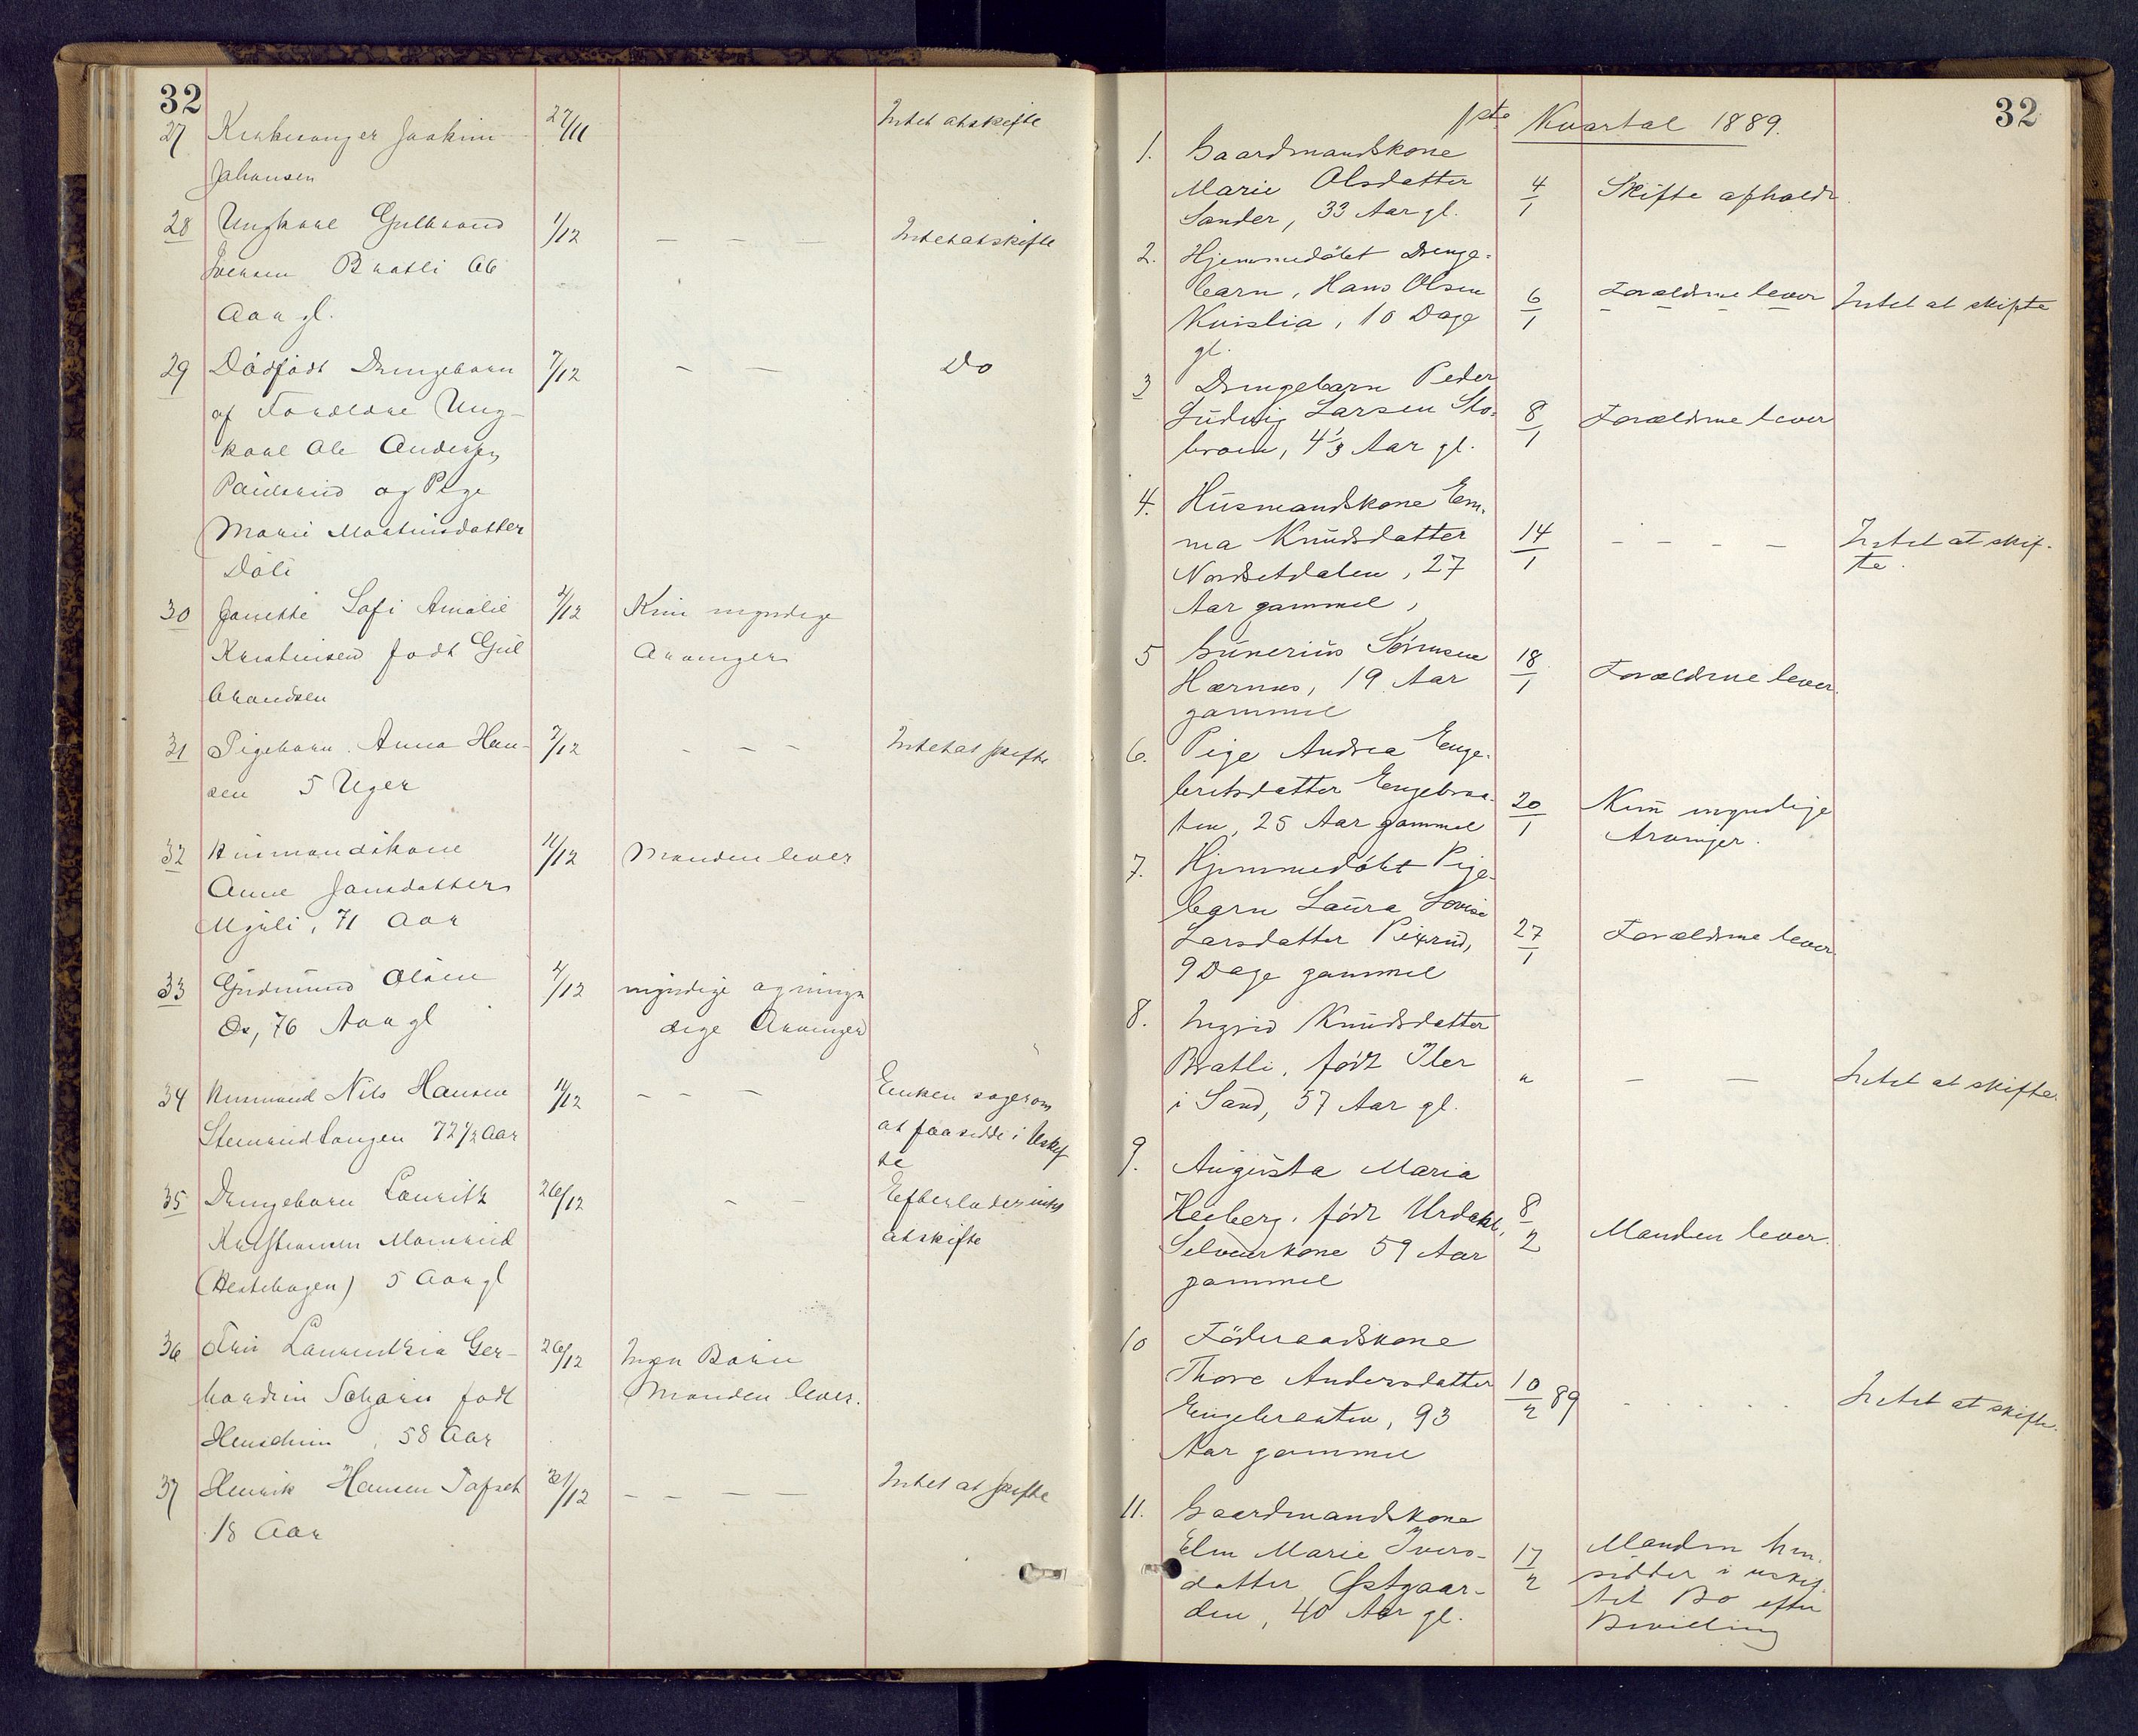 32
27 Joakim 27/11 Intet at skifte
Johansen
28 Ungkarl Gulbrand 1/12 — — — Intet at skifte
Iversen Bratli 66
Aar gl.
29 Dødfødt Drengebarn 7/12 — — Do
af Forældre Ung-
karl Ole Andersen
Paulsrud og Pige
Marie Martinsdatter
Døli
30 Janette Sofi Amalie 2/12 Kun myndige
Kristiensen født Gul Arvinger
brandsen
31 Pigebarn Anna Han- 7/12 — — — Intet at skifte
sen 5 Uger
32 Husmandskone 11/12 Manden lever
Anne Jansdatter
Mjøli, 71 Aar
33 Gudmund Olsen 4/12 myndige og umyn
Os, 76 Aar gl dige Arvinger
34 Husmand Nils Hansen 11/12 — — — Enken søger om
Stensrudtangen 72 1/2 Aar at faa sidde i Uskif
te
35 Drengebarn Lauritz 26/12 — — Efterlader intet
Kristiansen at skifte
(Hestehagen) 5 Aar gl
36 Fru Laurentzia Ger- 26/12 Ingen Børn
hardine født Manden lever.
58 Aar
37 Henrik Hansen Tofset 31/12 — — — — Intet at skifte
18 Aar
32
1ste Kvartal 1889.
1. Gaardmandskone
Marie Olsdatter 4/1 Skifte afholdt.
Sander, 33 Aar gl.
2. Hjemmedøbt Drenge-
barn, Hans Olsen 6/1 Forældrene lever Intet at skifte
Kvislia, 10 Dage
gl.
3 Drengebarn Peder
Ludvig Larsen Sto- 8/1 Forældrene lever
broen, 4 1/3 Aar gl.
4. Husmandskone Em-
ma Knudsdatter 14/1 — — — — Intet at skif-
Nordsetdalen, 27 te.
Aar gammel,
5 Gunerius Sørensen 18/1 Forældrene lever.
Hærnes, 19 Aar
gammel
6. Pige Andrea Enge-
bretsdatter Engebraa- 20/1 Kun myndige
ten, 25 Aar gammel Arvinger.
7. Hjemmedøbt Pige-
barn Laura Lovise
Larsdatter 27/1 Forældrene lever.
9 Dage gammel
8. Ingrid Knudsdatter
Bratli, født Iler " — — Intet at skifte.
i Sand, 57 Aar gl.
9. Augusta Maria
Heiberg, født Urdahl, 8/2 Manden lever.
Selveierkone 59 Aar
gammel
10 Föderaadskone
Thore Andersdatter 10/2 89 . . . . . Intet at skifte.
Engebraaten, 93
Aar gammel
11. Gaardmandskone
Elen Marie Ivers- 17/2 Manden hen-
datter Østgaar- sidder i uskif-
den, 40 Aar gl. tet Bo efter
Bevilling